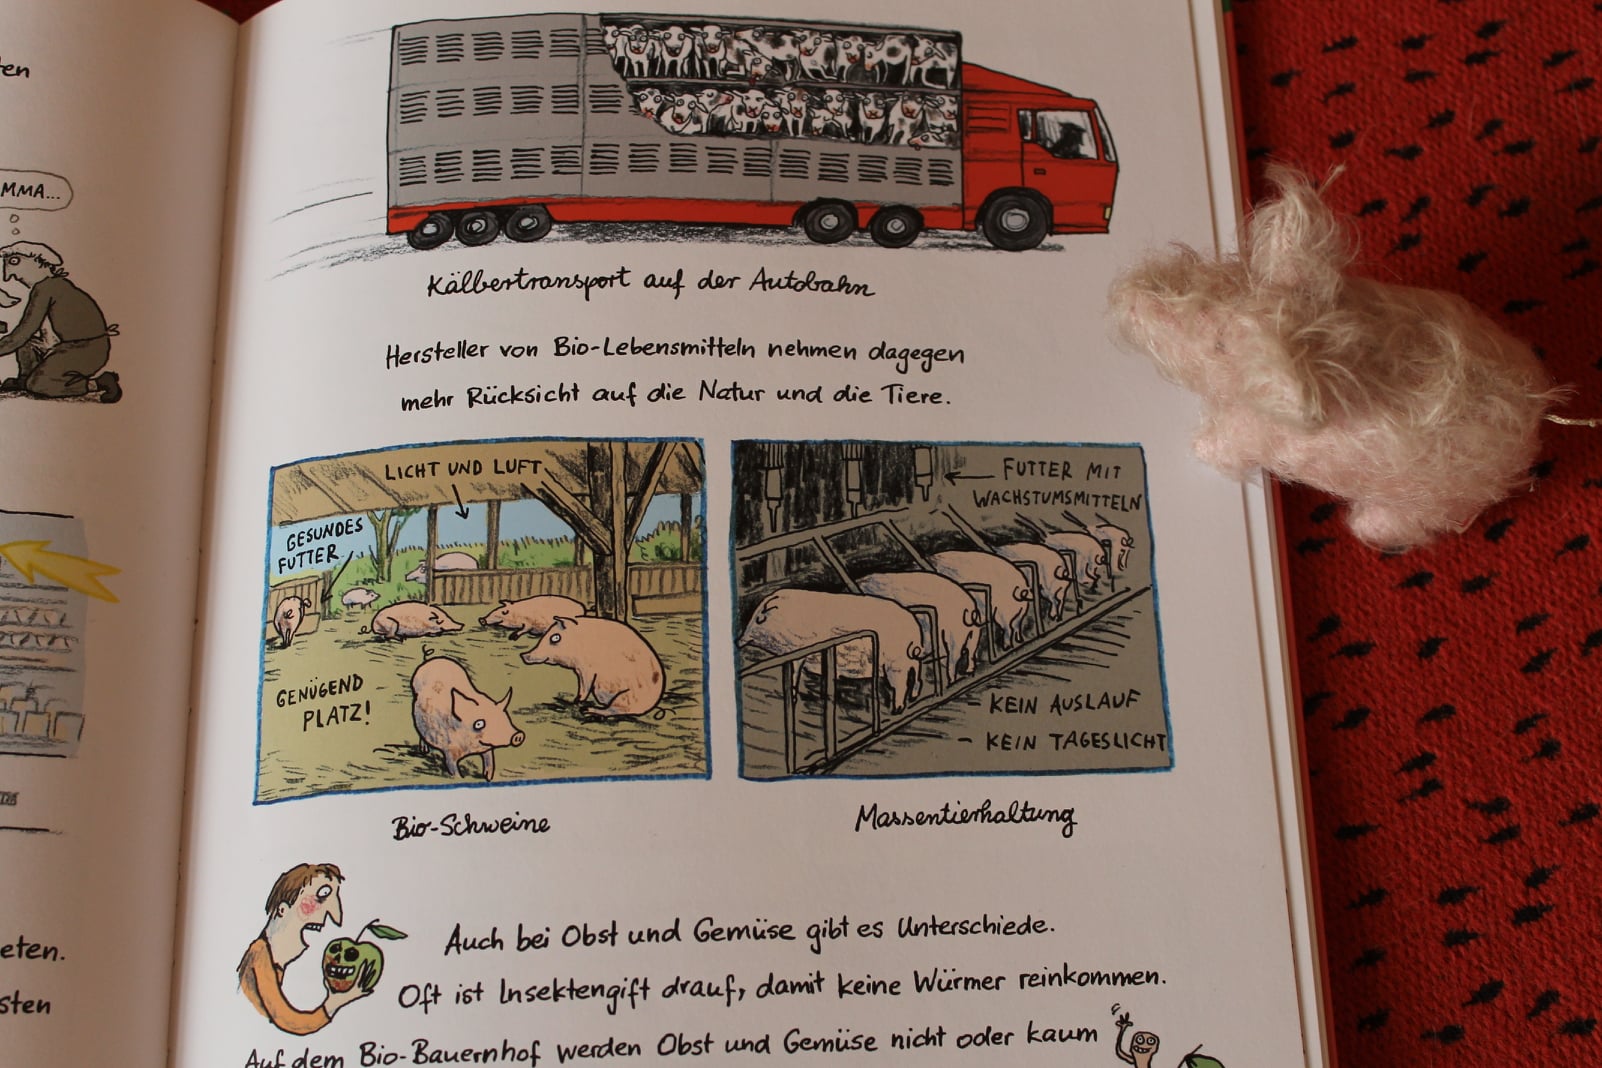 ten
MMA...
eten.
sten
Kälbertransport auf der Autobahn
Hersteller von Bio-Lebensmitteln nehmen dagegen
mehr Rücksicht auf die Natur und die Tiere.
LICHT UND LUFT
GESUNDES
FUTTER
GENÜGEND
PLATZ!
Bio-Schweine
FUTTER MIT
WACHSTUMSMITTELN
- KEIN AUSLAUF
- KEIN TAGESLICHT
Massentierhaltung
Auch bei Obst und Gemüse gibt es Unterschiede.
Oft ist Insektengift drauf, damit keine Würmer reinkommen.
Auf dem Bio-Bauernhof werden Obst und Gemüse nicht oder kaum